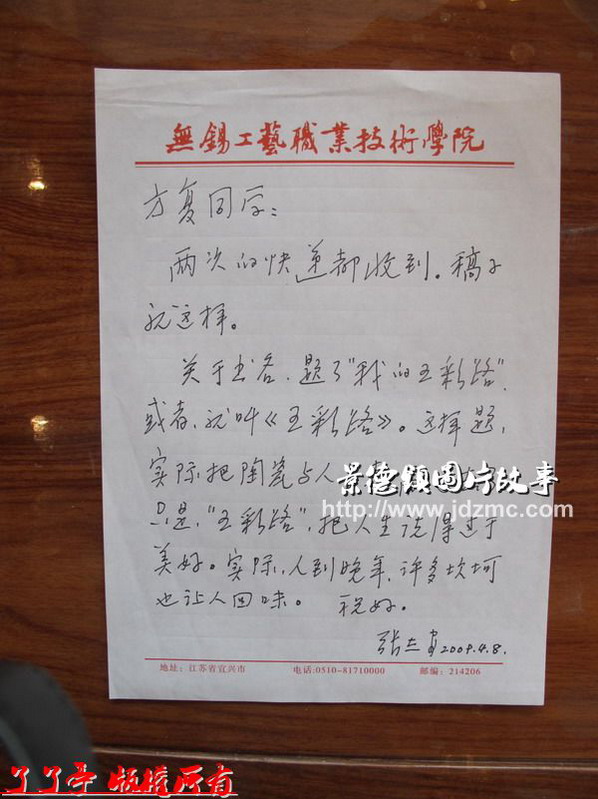 無錫工藝職業技術學院
方复同学：
两次的快递都收到。稿子
就这样。
关于书名，题了"我的五彩路"，
或者，就叫《五彩路》。这样题，
实际把陶瓷与人
景德鎮圖片故事
只是，"五彩路"，把人生说得过于
http://www.jdzmc.com
美好。实际，人到晚年，许多坎坷
也让人回味。 祝好。
2009.4.8.
地址：江苏省宜兴市 电话:0510-81710000 邮编：214206
了了亭 版权所有